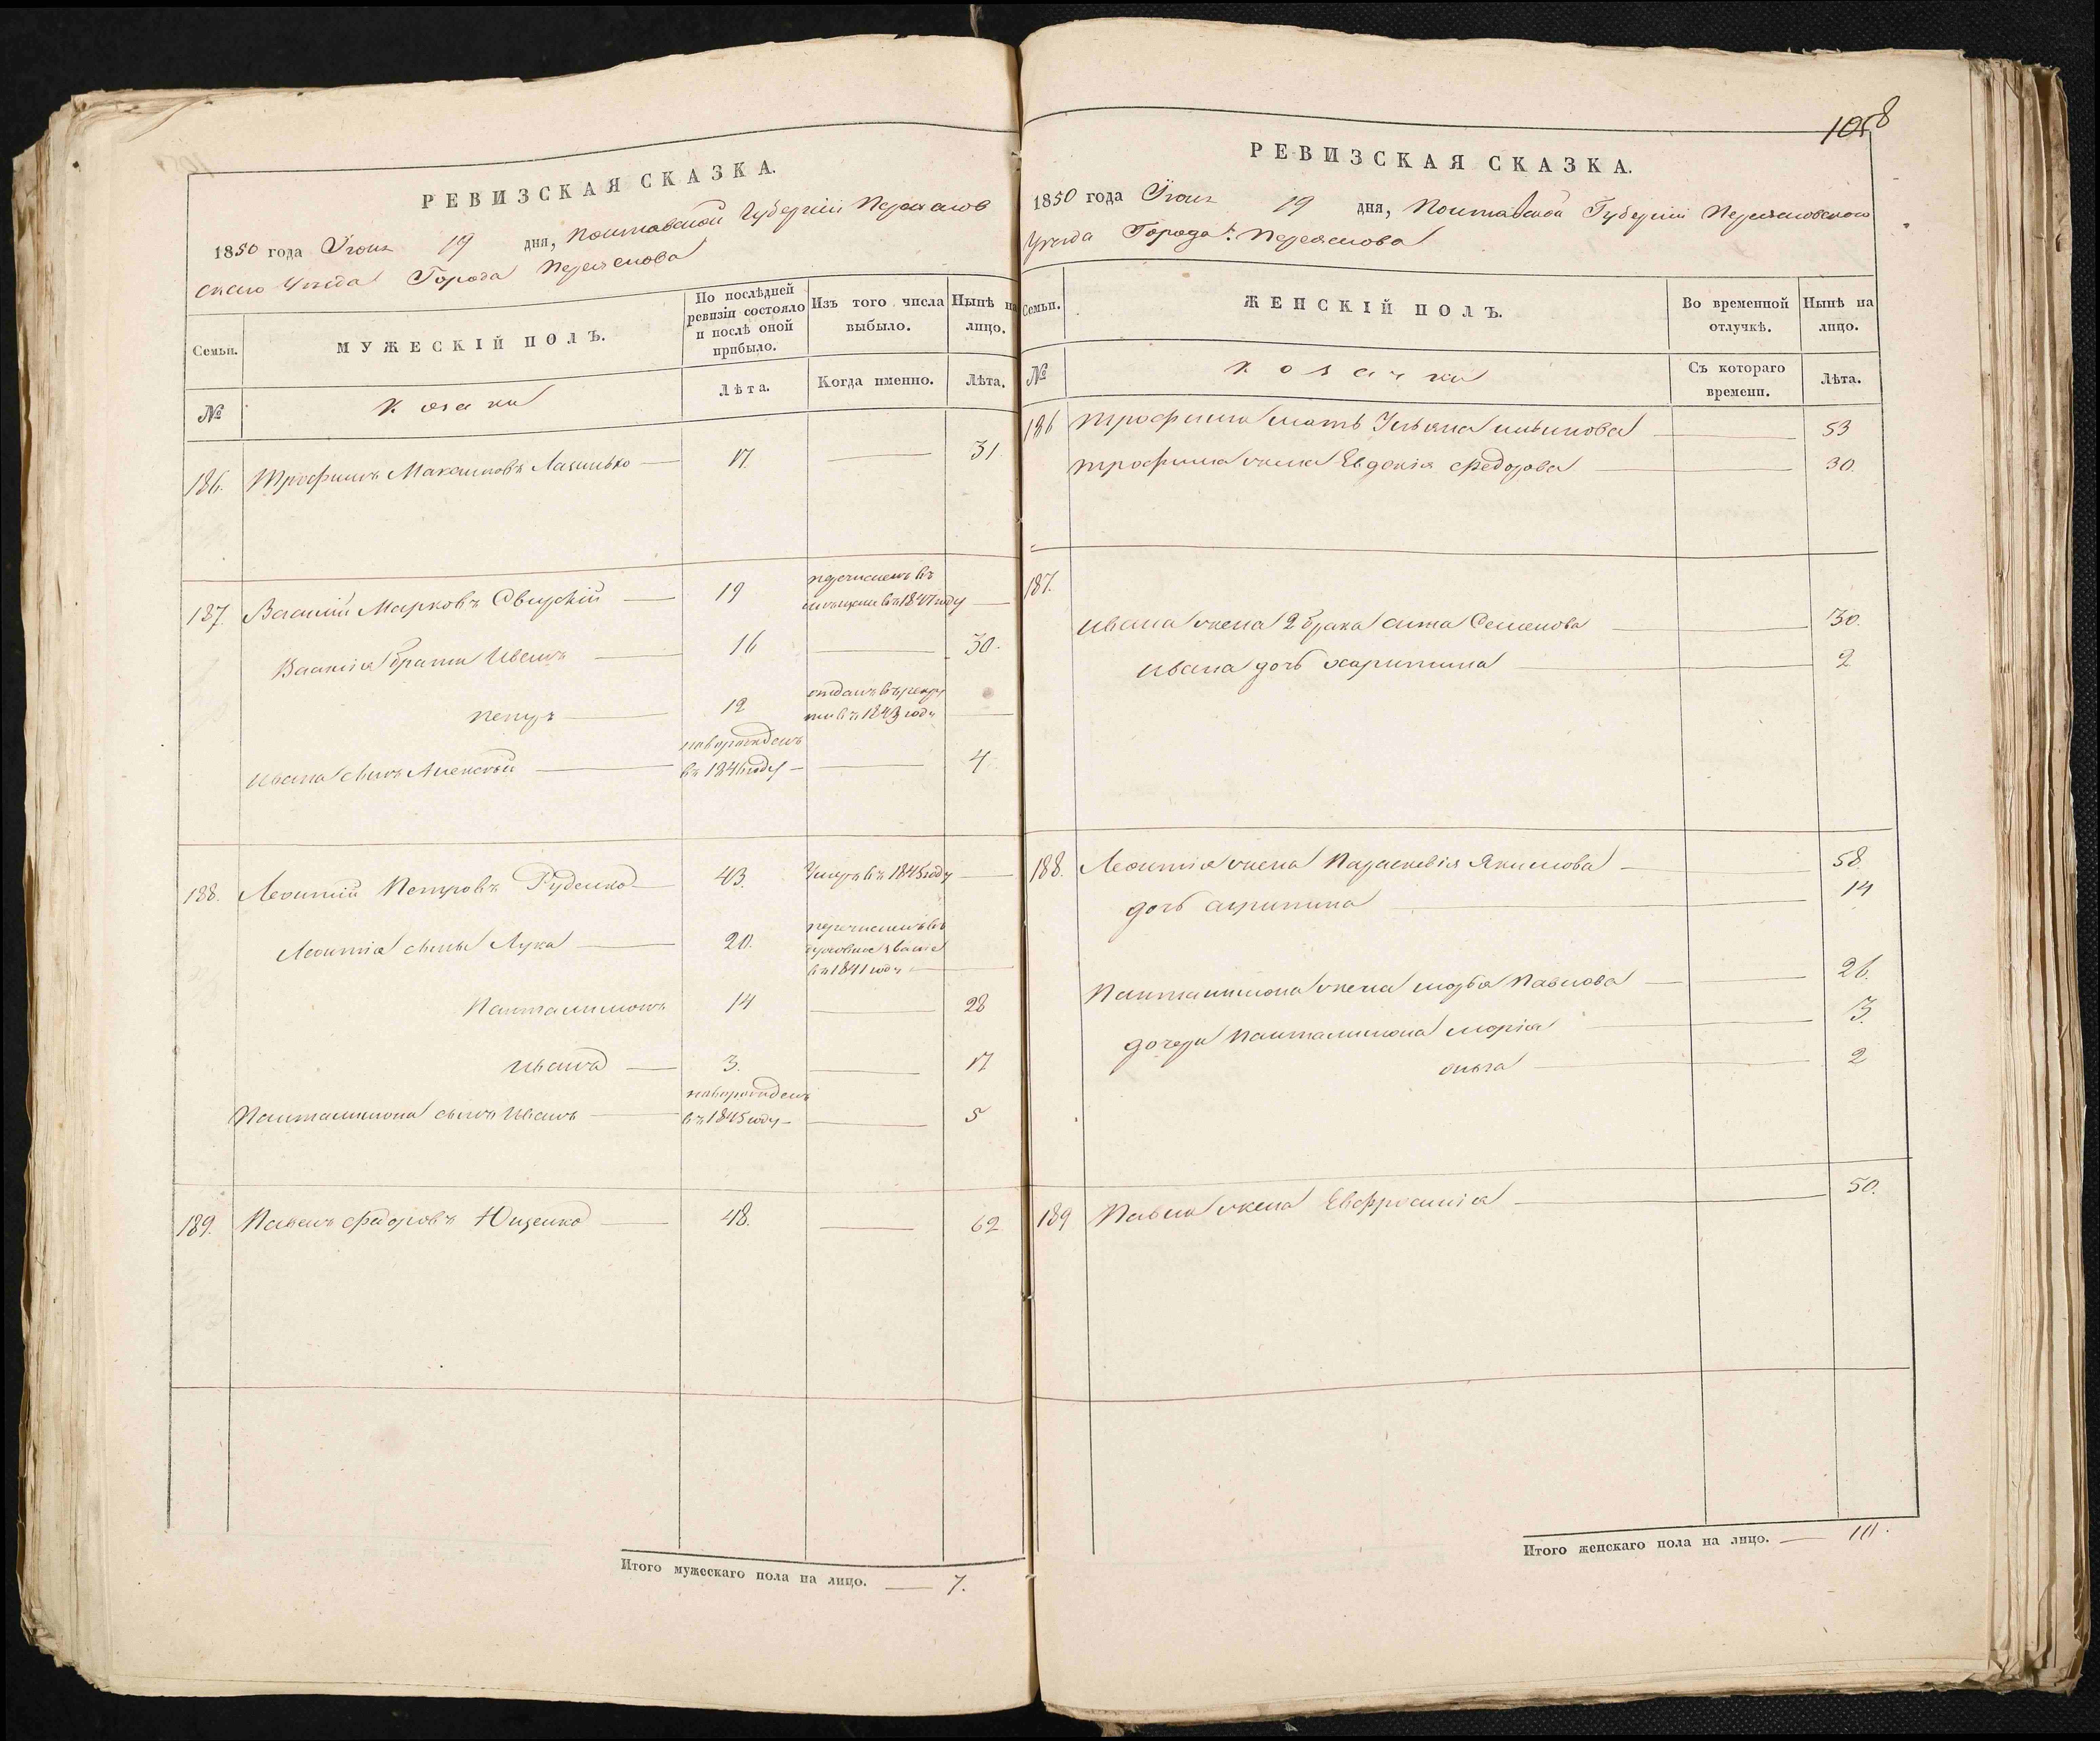 РЕВИЗСКАЯ СКАЗКА.
1850 года Іюня 19 дня, Полтавской Губерніи Переяслов
скаго Уѣзда Города Переяслова
Семьи.
МУЖЕСКІЙ ПОЛЪ.
По послѣдней
ревизіи состояло
и послѣ оной
прибыло.
Изъ того числа
выбыло.
Нынѣ на
лицо.
№
Козаки
Лѣта.
Когда именно.
Лѣта.
186. Трофимъ Максимовъ 17. 31.
187. Василій Марковъ 19 перечисленъ въ
мѣщане въ 1847 году
Василія братъ Иванъ 16 30.
Петръ 12 отданъ въ рекру
ты въ 1843 году
новорожденъ
Ивана сынъ Алексѣй въ 1846 году 4
188. Леонтій Петровъ Руденко 43. Умеръ въ 1845 году
перечисленъ въ
Леонтія сыны Лука 20. духовное званіе
въ 1841 году
Панталимонъ 14 28
Иванъ 3. 17
новорожденъ
Панталимона сынъ Иванъ въ 1845 году 5
189. Павелъ Федоровъ Ющенко 48. 62
Итого мужескаго пола на лицо. 7.
1058
РЕВИЗСКАЯ СКАЗКА.
1850 года Іюня 19 дня, Полтавской Губерніи Переясловскаго
Уѣзда Города Переяслова
Семьи.
ЖЕНСКІЙ ПОЛЪ.
Во временной
отлучкѣ.
Нынѣ на
лицо.
№
Козачки
Съ котораго
времени.
Лѣта.
186 Трофима мать Ульяна 53
Трофима жена Евдокія Федорова 30.
187.
Ивана жена 2 брака Семенова 30.
Ивана дочь Харитина 2
188. Леонтія жена Параскевія Якимова 58.
дочь Агрипина 14
Панталимона жена Марфа Павлова 26.
дочери Панталимона Марія 3.
Ольга 2
189 Павла жена Евфросинія 50.
Итого женскаго пола на лицо. 10.